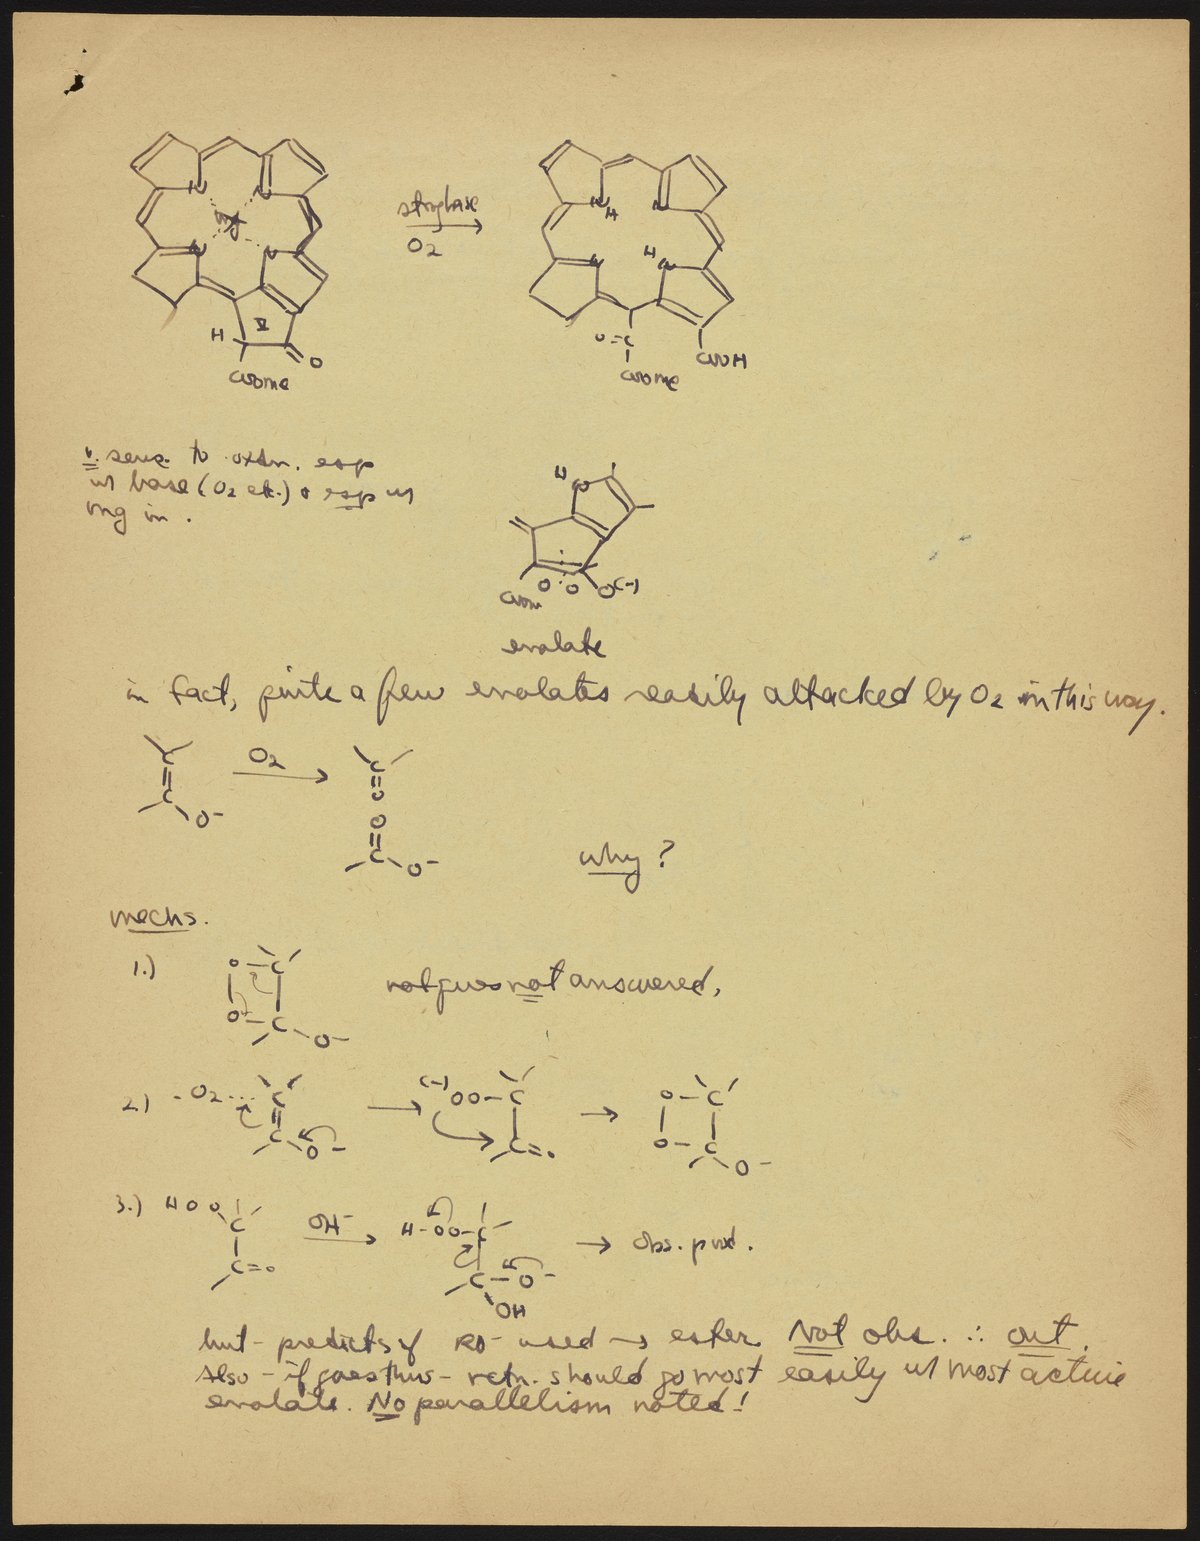 N N
Mg
N N
H V
O
COOMe
strong base
O2
N N
H
N H N
O=C
COOMe
COOH
v. sens. to oxdn. esp
w base (O2 etc.) & esp w
Mg in.
H N
COOM O O O(-)
enolate
in fact, quite a few enolates easily attacked by O2 in this way.
C
C O-
O2
C
O
O
C O-
why?
mechs.
1.)
O-C
O-C-O-
not answered,
2.) ·O2...C
C-O-
(-)OO-C
C=O
O-C
O-C-O-
3.) HOO C
C=O
OH-
H-OO-C
C-O-
OH
→ obs. prod.
but - predicts if RO- used → ester. Not obs. ∴ out.
Also - if goes thus - rctn. should go most easily w most active
enolate. No parallelism noted!